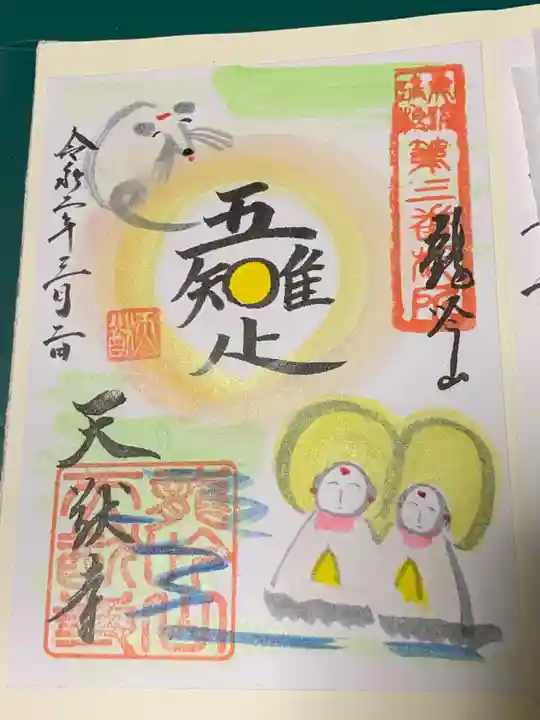 第三番札所
龍吟山
吾唯知足
令和二年三月二日
天猷寺